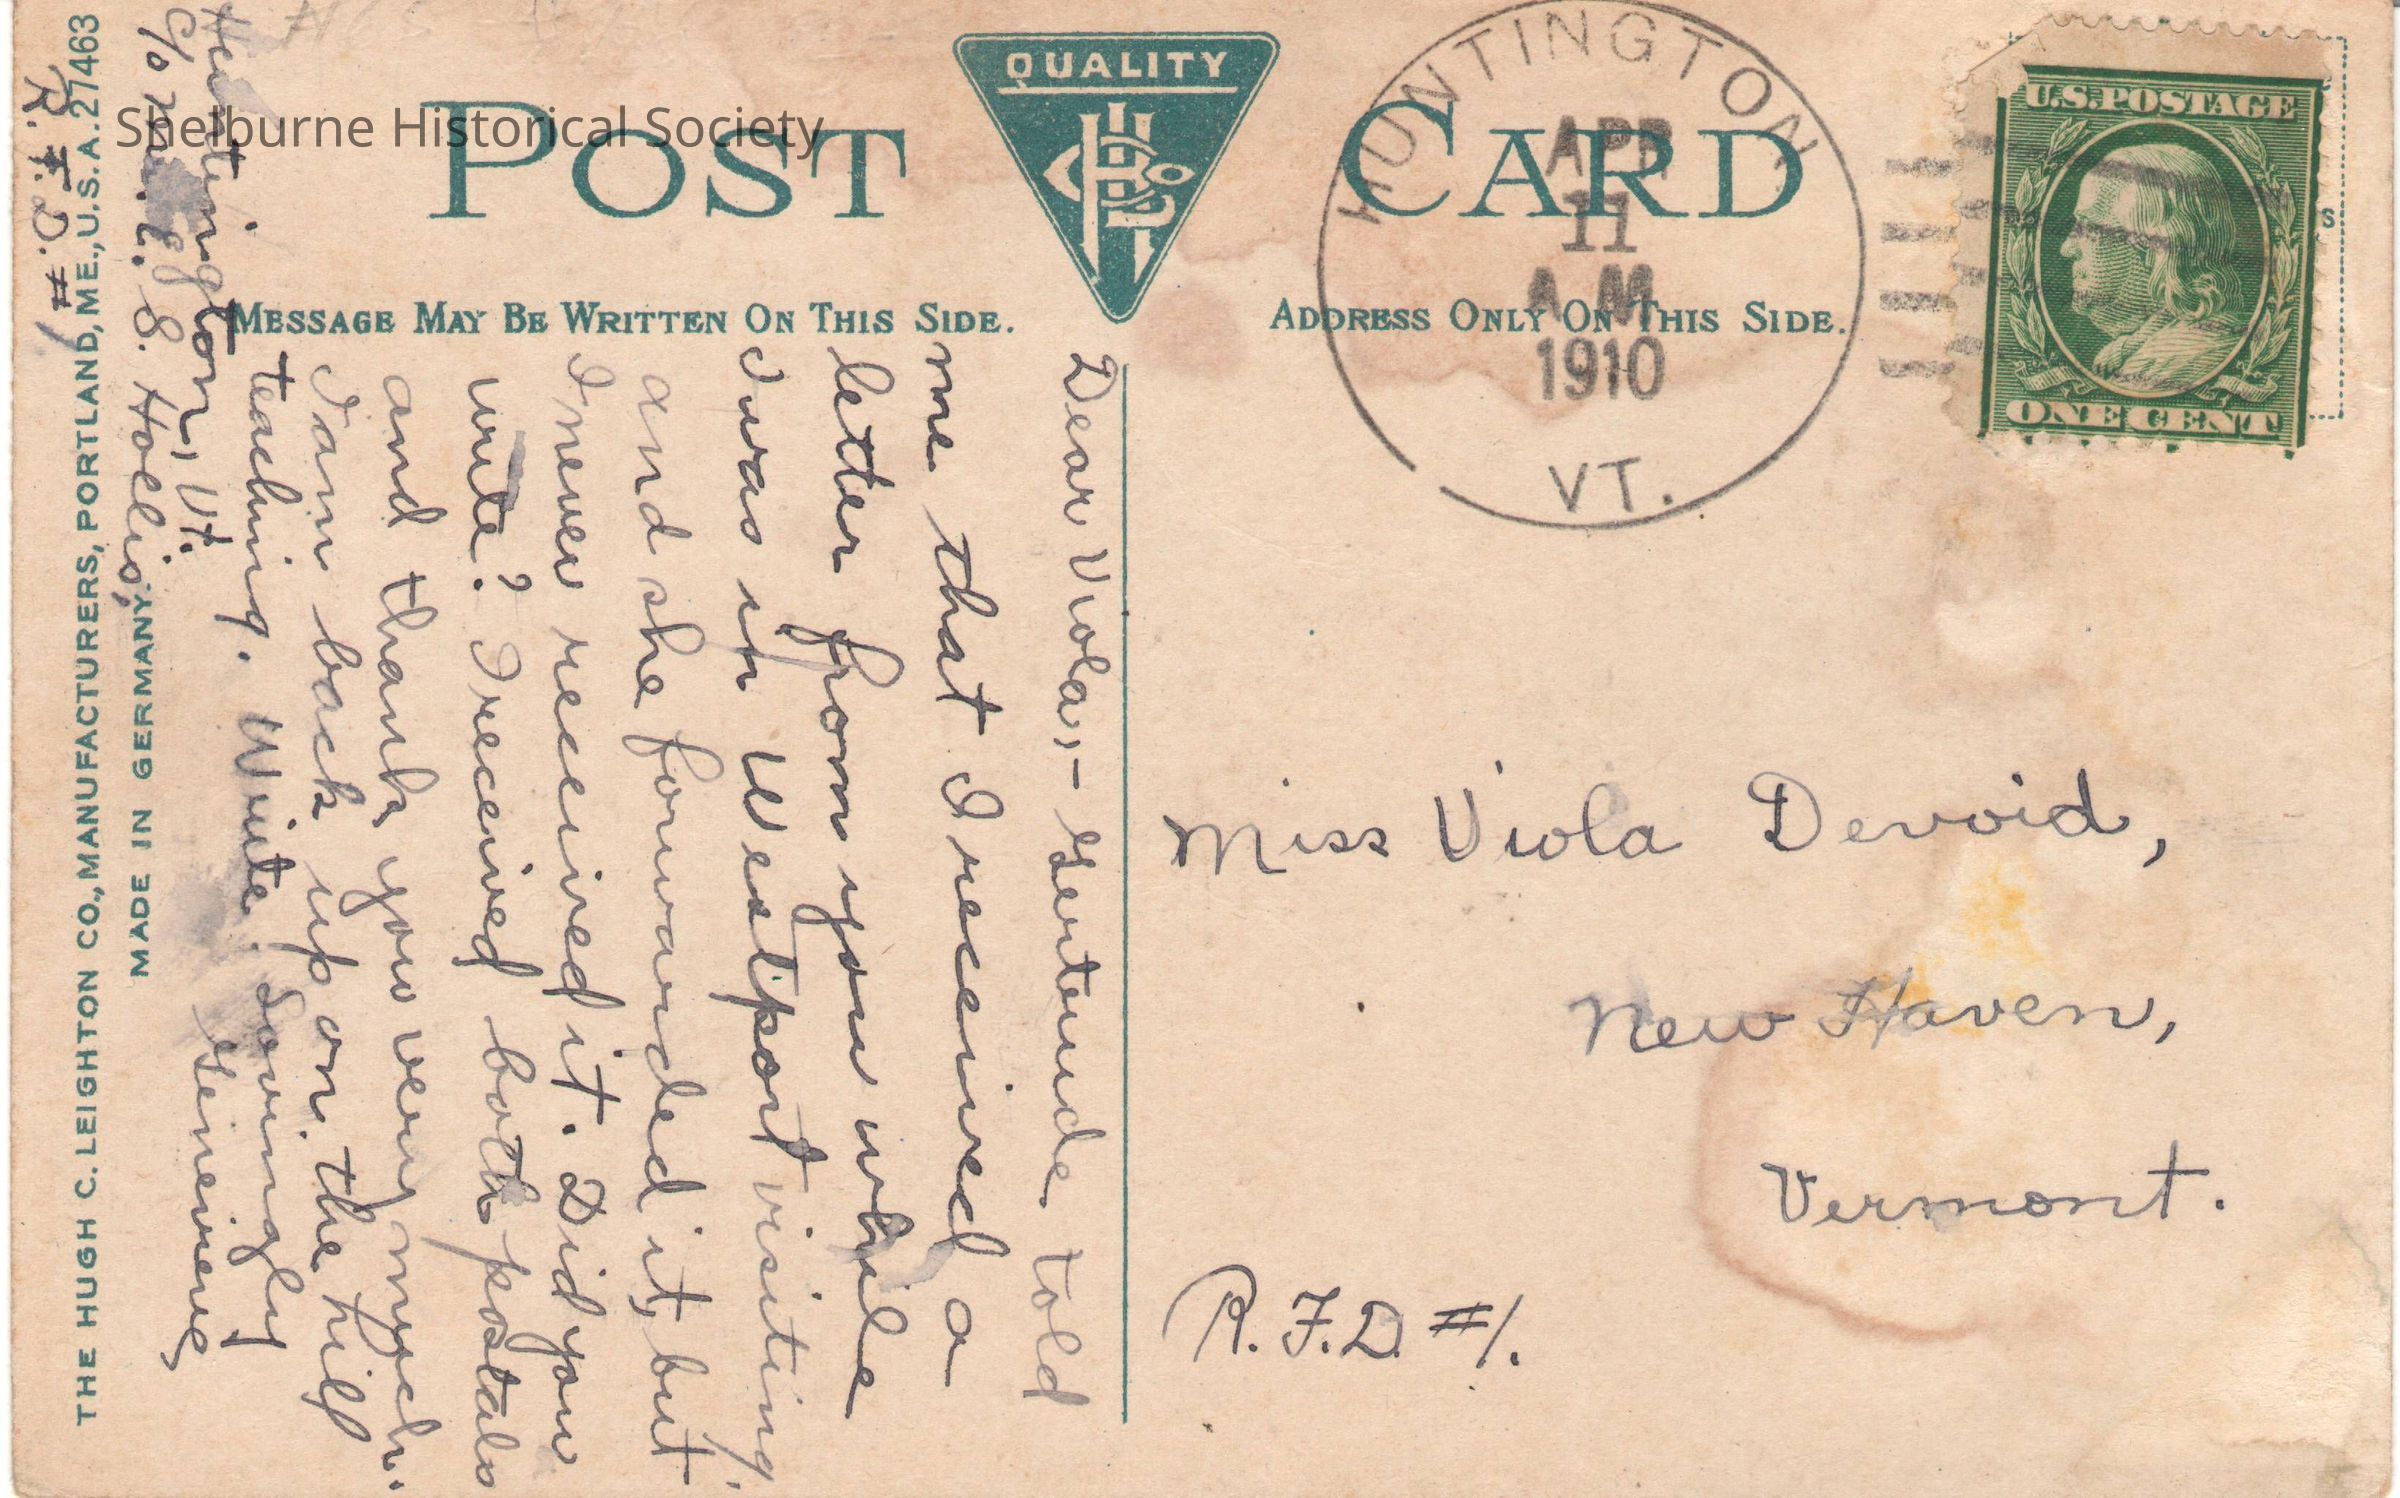 Shelburne Historical Society
QUALITY
POST CARD
MESSAGE MAY BE WRITTEN ON THIS SIDE.
ADDRESS ONLY ON THIS SIDE.
HUNTINGTON
APR
11
A M
1910
VT.
U.S. POSTAGE
ONE CENT
S
Dear Viola,- Gertrude told
me that I received a
letter from you while
I was in Westport visiting,
and she forwarded it, but
I never received it. Did you
write? I received both postals
and thank you very much.
I am back up on the hill
teaching. Write. Lovingly
Genevieve
Huntington, Vt.
c/o S. Hollis,
R. F. D. #1
Miss Viola Devoid,
New Haven,
Vermont.
R. F. D. #1.
MADE IN GERMANY.
THE HUGH C. LEIGHTON CO., MANUFACTURERS, PORTLAND, ME., U.S.A. 27463